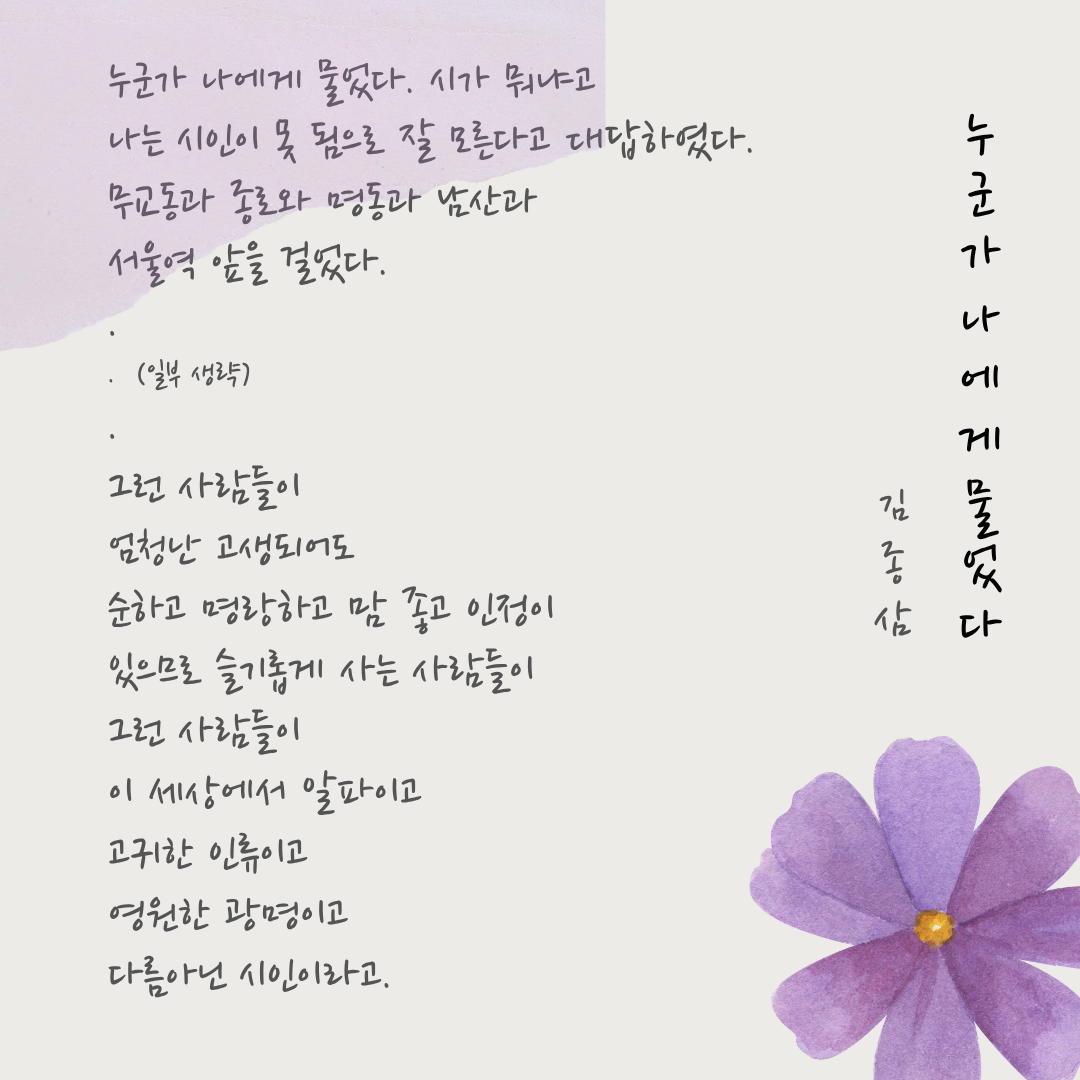 누군가 나에게 물었다. 시가 뭐냐고
나는 시인이 못 됨으로 잘 모른다고 대답하였다.
무교동과 종로와 명동과 남산과
서울역 앞을 걸었다.
.
. (일부 생략)
.
그런 사람들이
엄청난 고생되어도
순하고 명랑하고 맘 좋고 인정이
있으므로 슬기롭게 사는 사람들이
그런 사람들이
이 세상에서 알파이고
고귀한 인류이고
영원한 광명이고
다름아닌 시인이라고.
누군가나에게물었다
김종삼